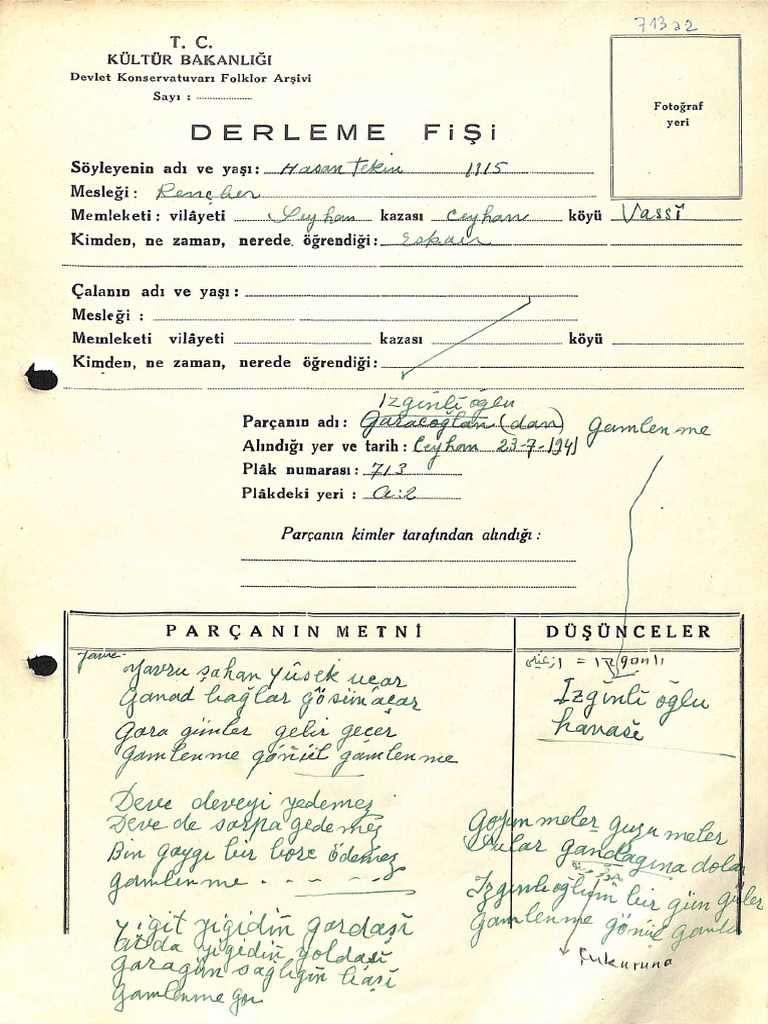 713 a 2
T. C.
KÜLTÜR BAKANLIĞI
Devlet Konservatuvarı Folklor Arşivi
Sayı :
Fotoğraf
yeri
DERLEME FİŞİ
Söyleyenin adı ve yaşı: Hasan Tekin 1915
Mesleği: Rençber
Memleketi: vilâyeti Seyhan kazası Ceyhan köyü
Kimden, ne zaman, nerede öğrendiği:
Çalanın adı ve yaşı :
Mesleği :
Memleketi vilâyeti kazası köyü
Kimden, ne zaman, nerede öğrendiği:
İzginli oğlu
Parçanın adı: Garacoğlan (dan) gamlenme
Alındığı yer ve tarih: Ceyhan 23-7-1941
Plâk numarası: 713
Plâkdeki yeri : a:2
Parçanın kimler tarafından alındığı :
PARÇANIN METNİ
Yavru şahan yüsek uçar
Ganad bağlar gösün açar
Gara günler gelir geçer
Gamlenme gönül gamlenme
Deve deveyi yedemez
Deve de sarpa gedemez
Bin gaygı bir borc ödemez
gamlenme . - - - -
Yiğit yiğidiñ gardaşı
at da yiğidiñ yoldaşı
Garagün sağlığın başı
Gamlenme gön
DÜŞÜNCELER
= ızganlı
İzginli oğlu
havası
Goyun meler guzu meler
Sular gandağına dolar
İzginlioğlum bir gün güler
Gamlenme gönül gamle
çukuruna